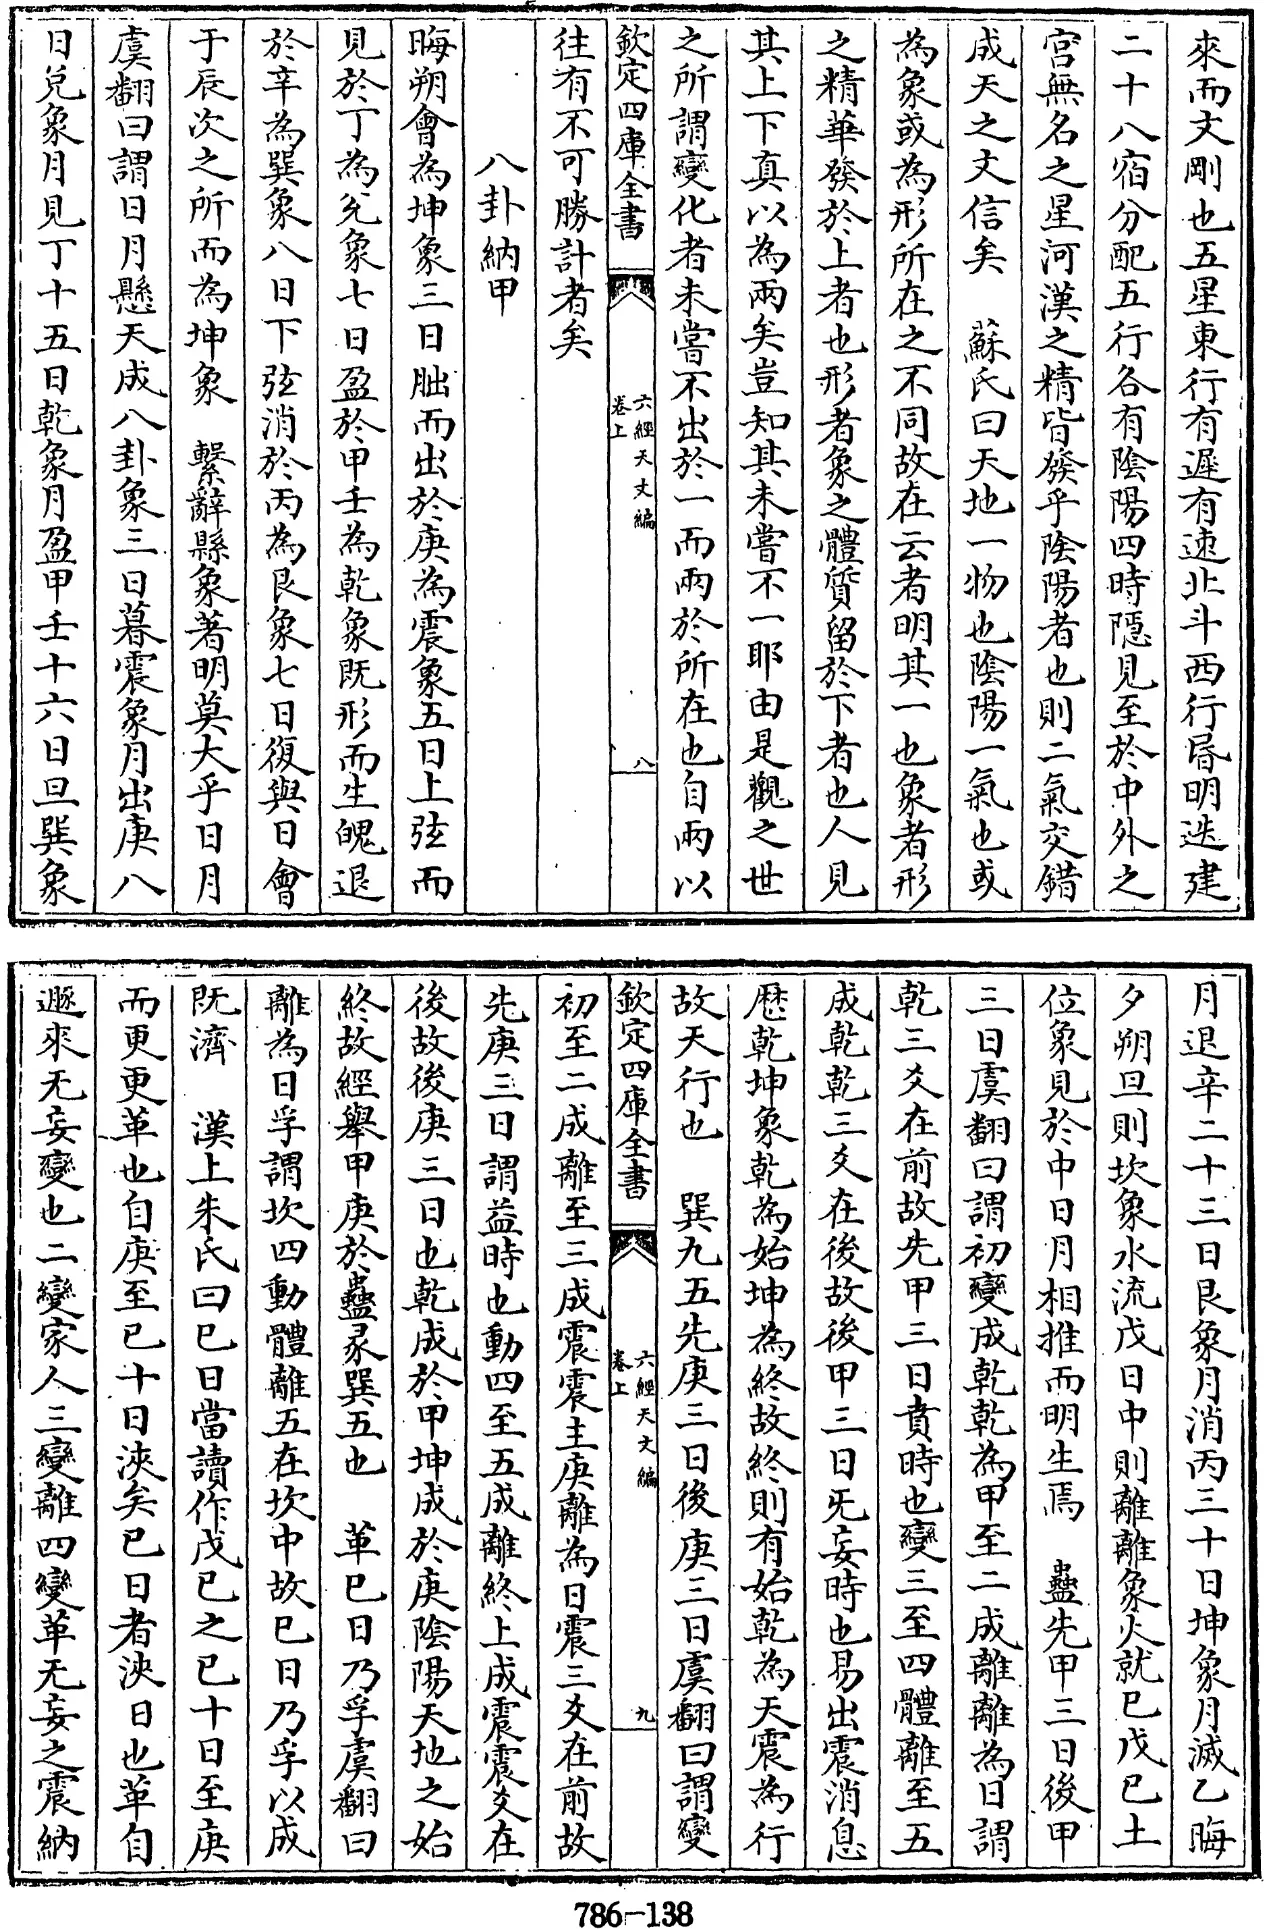 來而文剛也五星東行有遲有速北斗西行昏明迭建
二十八宿分配五行各有陰陽四時隱見至於中外之
宫無名之星河漢之精皆發乎陰陽者也則二氣交錯
成天之文信矣　蘇氏曰天地一物也陰陽一氣也或
為象或為形所在之不同故在云者明其一也象者形
之精華發於上者也形者象之體質留於下者也人見
其上下真以為兩矣豈知其未嘗不一耶由是觀之世
之所謂變化者未嘗不出於一而兩於所在也自兩以
欽定四庫全書
六經天文編
卷上
八
往有不可勝計者矣
八卦納甲
晦朔會為坤象三日朏而出於庚為震象五日上弦而
見於丁為兊象七日盈於甲壬為乾象既形而生魄退
於辛為巽象八日下弦消於丙為艮象七日復與日會
于辰次之所而為坤象　繫辭縣象著明莫大乎日月
虞翻曰謂日月懸天成八卦象三日暮震象月出庚八
日兌象月見丁十五日乾象月盈甲壬十六日旦巽象
月退辛二十三日艮象月消丙三十日坤象月滅乙晦
夕朔旦則坎象水流戊日中則離離象火就巳戊巳土
位象見於中日月相推而明生焉　蠱先甲三日後甲
三日虞翻曰謂初變成乾乾為甲至二成離離為日謂
乾三爻在前故先甲三日賁時也變三至四體離至五
成乾乾三爻在後故後甲三日旡妄時也易出震消息
歷乾坤象乾為始坤為終故終則有始乾為天震為行
故天行也　巽九五先庚三日後庚三日虞翻曰謂變
欽定四庫全書
六經天文編
卷上
九
初至二成離至三成震震主庚離為日震三爻在前故
先庚三日謂益時也動四至五成離終上成震震爻在
後故後庚三日也乾成於甲坤成於庚陰陽天地之始
終故經舉甲庚於蠱彖巽五也　革巳日乃孚虞翻曰
離為日孚謂坎四動體離五在坎中故巳日乃孚以成
既濟　漢上朱氏曰巳日當讀作戊巳之巳十日至庚
而更更革也自庚至巳十日浹矣巳日者浹日也革自
遯來无妄變也二變家人三變離四變革无妄之震納
786-138